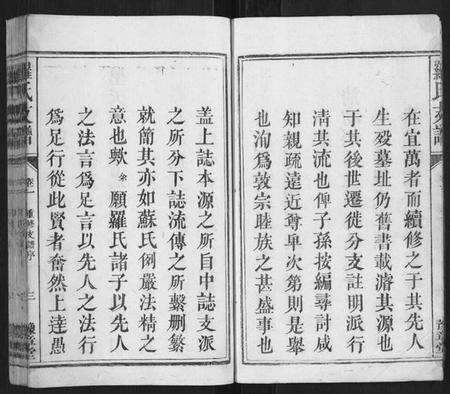 在宜萬者而續修之于其先人
生歿墓址仍舊書載濬其源也
于其後世遷徙分支註明派行
清其流也俾子孫按編尋討咸
知親疏遠近尊卑次第則是舉
也洵爲敦宗睦族之甚盛事也
羅氏支譜
卷一
重修支譜序
三
豫章堂
蓋上誌本源之所自中誌支派
之所分下誌流傳之所繫刪繁
就簡其亦如蘇氏例嚴法精之
意也歟余願羅氏諸子以先人
之法言爲足言以先人之法行
爲足行從此賢者奮然上達愚